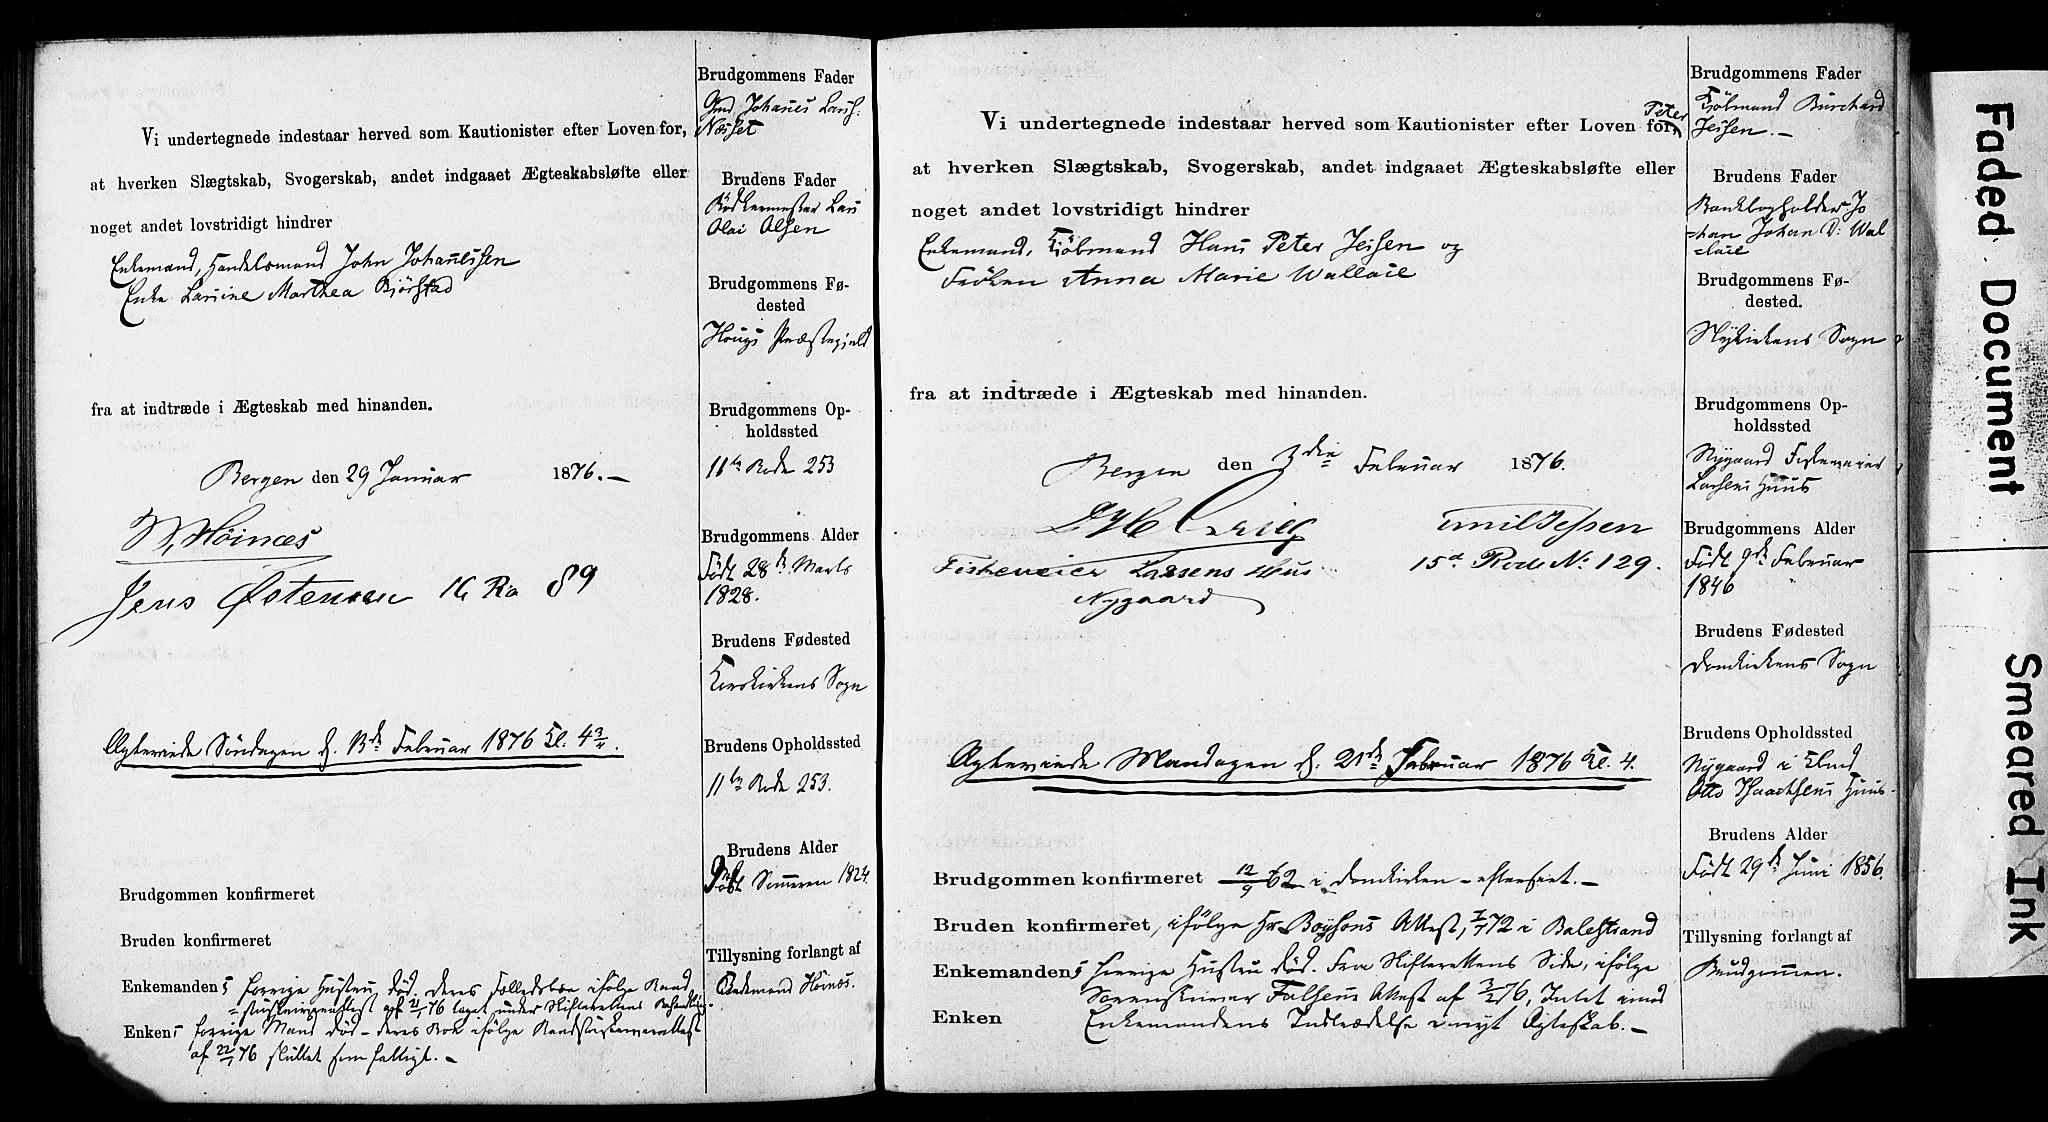 Vi undertegnede indestaar herved som Kautionister efter Loven for,
at hverken Slægtskab, Svogerskab, andet indgaaet Ægteskabsløfte eller
noget andet lovstridigt hindrer
Enkemand, Handelsmand John Johanessen
Enke Larine Marthea Bjørstad
fra at indtræde i Ægteskab med hinanden.
Bergen den 29 Januar 1876.-
Høinæs
Jens Østensen 16 Ro 89
Ægteviede Søndagen d. 13de Februar 1876 Kl. 4¾.
Brudgommen konfirmeret
Bruden konfirmeret
Enkemandens forrige Hustru død. deres Fællesboe ifølge
af 21/1 76 taget under Skifterettens Behandling.
Enkens forrige Mand død - deres Boe ifølge
af 22/1 76 sluttet som fattigt. -
Brudgommens Fader
Johanes
Næsset
Brudens Fader
Bødkermester Lars
Olai Olsen
Brudgommens Fø-
dested
Hougs Præstegjeld
Brudgommens Op-
holdssted
11te Rode 253
Brudgommens Alder
Født 28de Marts
1828.
Brudens Fødested
Korskirkens Sogn
Brudens Opholdssted
11te Rode 253.
Brudens Alder
Født Sommeren 1824.
Tillysning forlangt af
Høinæs.
Vi undertegnede indestaar herved som Kautionister efter Loven for,
at hverken Slægtskab, Svogerskab, andet indgaaet Ægteskabsløfte eller
noget andet lovstridigt hindrer
Enkemand, Kjøbmand Hans Peter Jessen og
Frøken Anna Marie Wallace
fra at indtræde i Ægteskab med hinanden.
Bergen den 3die Februar 1876.
Grieg Emil Jessen
Fiskeveier Lassens Hus 15d Rode No 129.
Nygaard
Ægteviede Mandagen d. 21de Februar 1876 Kl. 4.
Brudgommen konfirmeret 12/9 62 i Domkirken - efterseet. -
Bruden konfirmeret, ifølge Hr Boysens Attest, 7/7 72 i Balestrand
Enkemandens forrige Hustru død. Fra Skifterettens Side, ifølge
Sorenskriver Falsens Attest af 3/2 76, Intet imod
Enken
Enkemandens Indtrædelse i nyt Ægteskab. -
Brudgommens Fader
Kjøbmand Burchard
Peter
Jessen. -
Brudens Fader
Bankbogholder Jo
=han Johan D: Wal
=lace
Brudgommens Fø-
dested.
Nykirkens Sogn
Brudgommens Op-
holdssted
Nygaard Fiskeveier
Lassens Huus
Brudgommens Alder
Født 9de Februar
1846
Brudens Fødested
Domkirkens Sogn
Brudens Opholdssted
Nygaard i
Otto Isaachsens Huus.
Brudens Alder
Født 29de Juni 1856.
Tillysning forlangt af
Brudgommen.
Faded Document
Smeared Ink